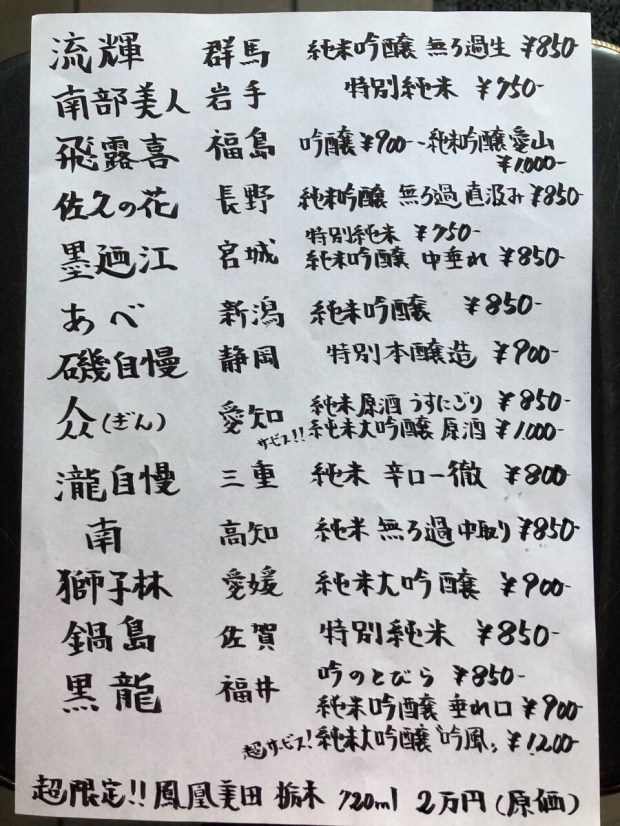 流輝 群馬 純米吟醸 無ろ過生 ¥850-
南部美人 岩手 特別純米 ¥750-
飛露喜 福島 吟醸¥900-・純米吟醸愛山
¥1,000-
佐久の花 長野 純米吟醸 無ろ過直汲み ¥850
特別純米 ¥750-
墨廼江 宮城 純米吟醸 中垂れ ¥850-
あべ 新潟 純米吟醸 ¥850-
磯自慢 静岡 特別本醸造 ¥900-
純米原酒 うすにごり ¥850-
(ぎん) 愛知 サービス!! 純米大吟醸 原酒 ¥1,000-
瀧自慢 三重 純米 辛口一徹 ¥800
南 高知 純米 無ろ過中取り ¥850-
獅子林 愛媛 純米大吟醸 ¥900-
鍋島 佐賀 特別純米 ¥850-
黒龍 福井 吟のとびら ¥850-
純米吟醸 垂れ口 ¥900
超サービス! 純米大吟醸“吟風„ ¥1,200-
超限定!! 鳳凰美田 栃木 720ml 2万円(原価)